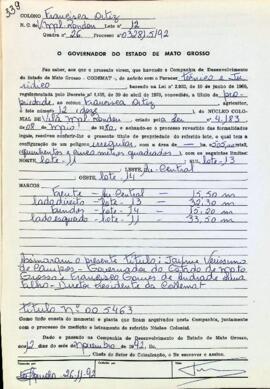 339
COLONO Francisca Ortiz
N. C. de Vila Mal. Rondon Lote n.° 12
Quadra n.° 26 Processo n.° 03281.5/92
O GOVERNADOR DO ESTADO DE MATO GROSSO
Faz saber, aos que o presente virem, que havendo a Companhia de Desenvolvimento
do Estado de Mato Grosso - CODEMAT -, de acordo com o Parecer Técnico e Ju-
rídico baseado na Lei n.° 2.922, de 10 de junho de 1969,
regulamentada pelo Decreto n.° 1.138, de 20 de abril de 1970, concedido o título de pro-
priedade a Francisca Ortiz agricultor,
o lote n.° 12 do NÚCLEO COLO-
NIAL de Vila Mal. Rondon criado pela Lei 4.183
de 08 de maio de 1980, e achando-se o processo revestido das formalidades
legais, resolveu conferir-lhe o presente título de propriedade do referido lote, o qual tem a
configuração de um polígono irregular com a área de 505 m²,
quinhentos e cinco metros quadrados com os seguintes limites:
NORTE, lote - 11 SUL, lote - 13
LESTE, Av. Central
OESTE, lote 14
MARCOS
Frente - Av. Central - 15,50 m
lado direito - lote - 13 - 32,30 m
fundos - lote - 14 - 15,20 m
lado esquerdo - lote - 11 - 33,50 m
Assinaram o presente título: Jayme Veríssimo
de Campos - Governador do Estado de Mato
Grosso e Francisco Gomes de Andrade Lima
Filho - Diretor Presidente da Codemat
Título Nº 005463
Tudo como consta do memorial e planta que ficam arquivados nesta Companhia, juntamente
com o processo de medição e loteamento do referido Núcleo Colonial.
Dado e passado na Companhia de Desenvolvimento do Estado de Mato Grosso, aos
12 dias de novembro de 92.
Chefe do Setor de Colonização, o fiz escrever e assino.
26.11.92